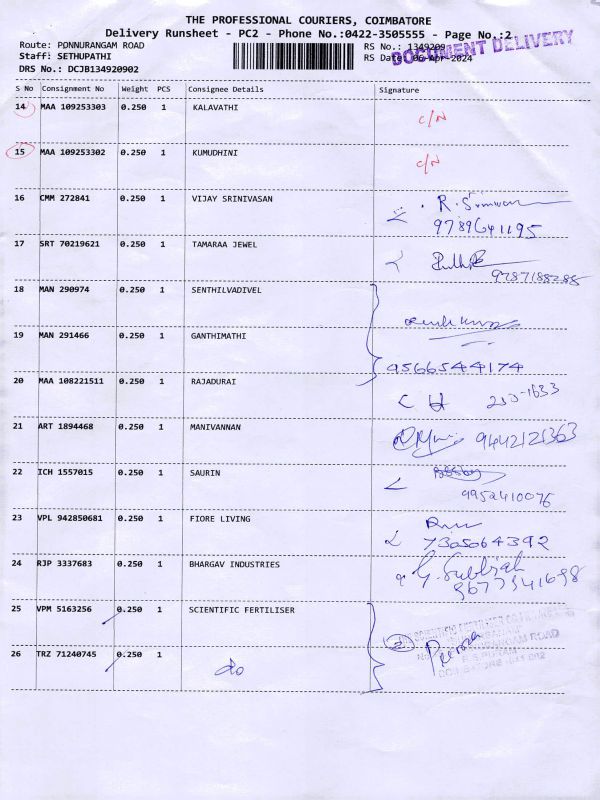 THE PROFESSIONAL COURIERS, COIMBATORE
Delivery Runsheet - PC2 - Phone No.:0422-3505555 - Page No.:2
Route: PONNURANGAM ROAD RS No.: 1349209
DOCUMENT DELIVERY
Staff: SETHUPATHI RS Date: 06-Apr-2024
DRS No.: DCJB134920902
S No Consignment No Weight PCS Consignee Details Signature
14 MAA 109253303 0.250 1 KALAVATHI C/N
15 MAA 109253302 0.250 1 KUMUDHINI C/N
16 CMM 272841 0.250 1 VIJAY SRINIVASAN
9789641195
17 SRT 70219621 0.250 1 TAMARAA JEWEL
9787188285
18 MAN 290974 0.250 1 SENTHILVADIVEL
19 MAN 291466 0.250 1 GANTHIMATHI
9566544174
20 MAA 108221511 0.250 1 RAJADURAI
250-1633
21 ART 1894468 0.250 1 MANIVANNAN
9442121363
22 ICH 1557015 0.250 1 SAURIN
9952410076
23 VPL 942850681 0.250 1 FIORE LIVING
7305064392
24 RJP 3337683 0.250 1 BHARGAV INDUSTRIES G. Subbiah
9677341698
25 VPM 5163256 0.250 1 SCIENTIFIC FERTILISER
2
26 TRZ 71240745 0.250 1 do